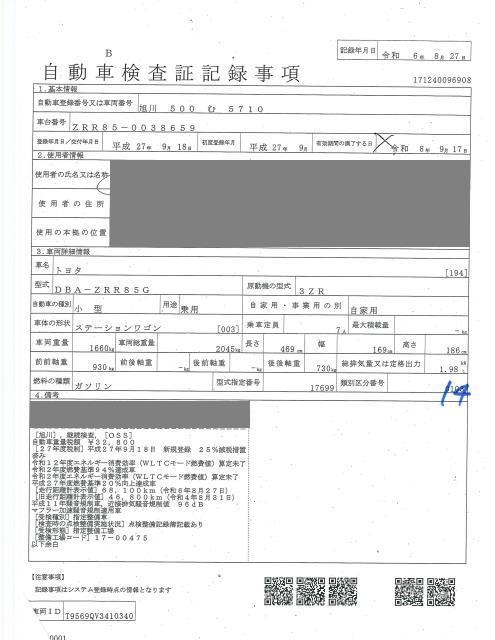 B
記録年月日 令和 6年 8月 27日
自動車検査証記録事項
171240096908
1.基本情報
自動車登録番号又は車両番号 旭川 500 む 5710
車台番号 ZRR85-0038659
登録年月日/交付年月日 平成 27年 9月 18日 初度登録年月 平成 27年 9月 有効期間の満了する日 令和 8年 9月 17日
2.使用者情報
使用者の氏名又は名称
使用者の住所
使用の本拠の位置
3.車両詳細情報
車名 トヨタ [194]
型式 DBA-ZRR85G 原動機の型式 3ZR
自動車の種別 小型 用途 乗用 自家用・事業用の別 自家用
車体の形状 ステーションワゴン [003] 乗車定員 7人 最大積載量 -kg
車両重量 1660kg 車両総重量 2045kg 長さ 469cm 幅 169cm 高さ 186cm
前前軸重 930kg 前後軸重 -kg 後前軸重 -kg 後後軸重 730kg 総排気量又は定格出力 1.98 kW L
燃料の種類 ガソリン 型式指定番号 17699 類別区分番号
14
4.備考
[旭川],継続検査,[OSS]
自動車重量税額 ¥32,800
[27年度税制]平成27年9月18日 新規登録 25%減税措置
済み
令和12年度エネルギー消費効率(WLTCモード燃費値)算定未了
令和2年度燃費基準94%達成車
令和2年度エネルギー消費効率(WLTCモード燃費値)算定未了
平成27年度燃費基準20%向上達成車
[走行距離計表示値]68,100km(令和6年8月27日)
[旧走行距離計表示値]46,800km(令和4年8月31日)
平成11年騒音規制車,近接排気騒音規制値 96dB
マフラー加速騒音規制適用車
[受検種別]指定整備車
[検査時の点検整備実施状況]点検整備記録簿記載あり
[受検形態]指定整備工場
[整備工場コード]17-00475
以下余白
【注意事項】
記録事項はシステム登録時点の情報となります
車両ID T9569QY3410340
0001